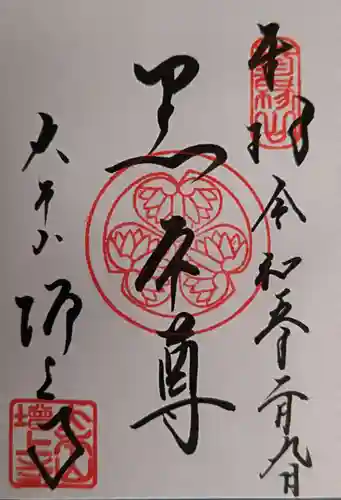 奉拝
令和五年二月九日
黒本尊
大本山
増上寺
増上寺